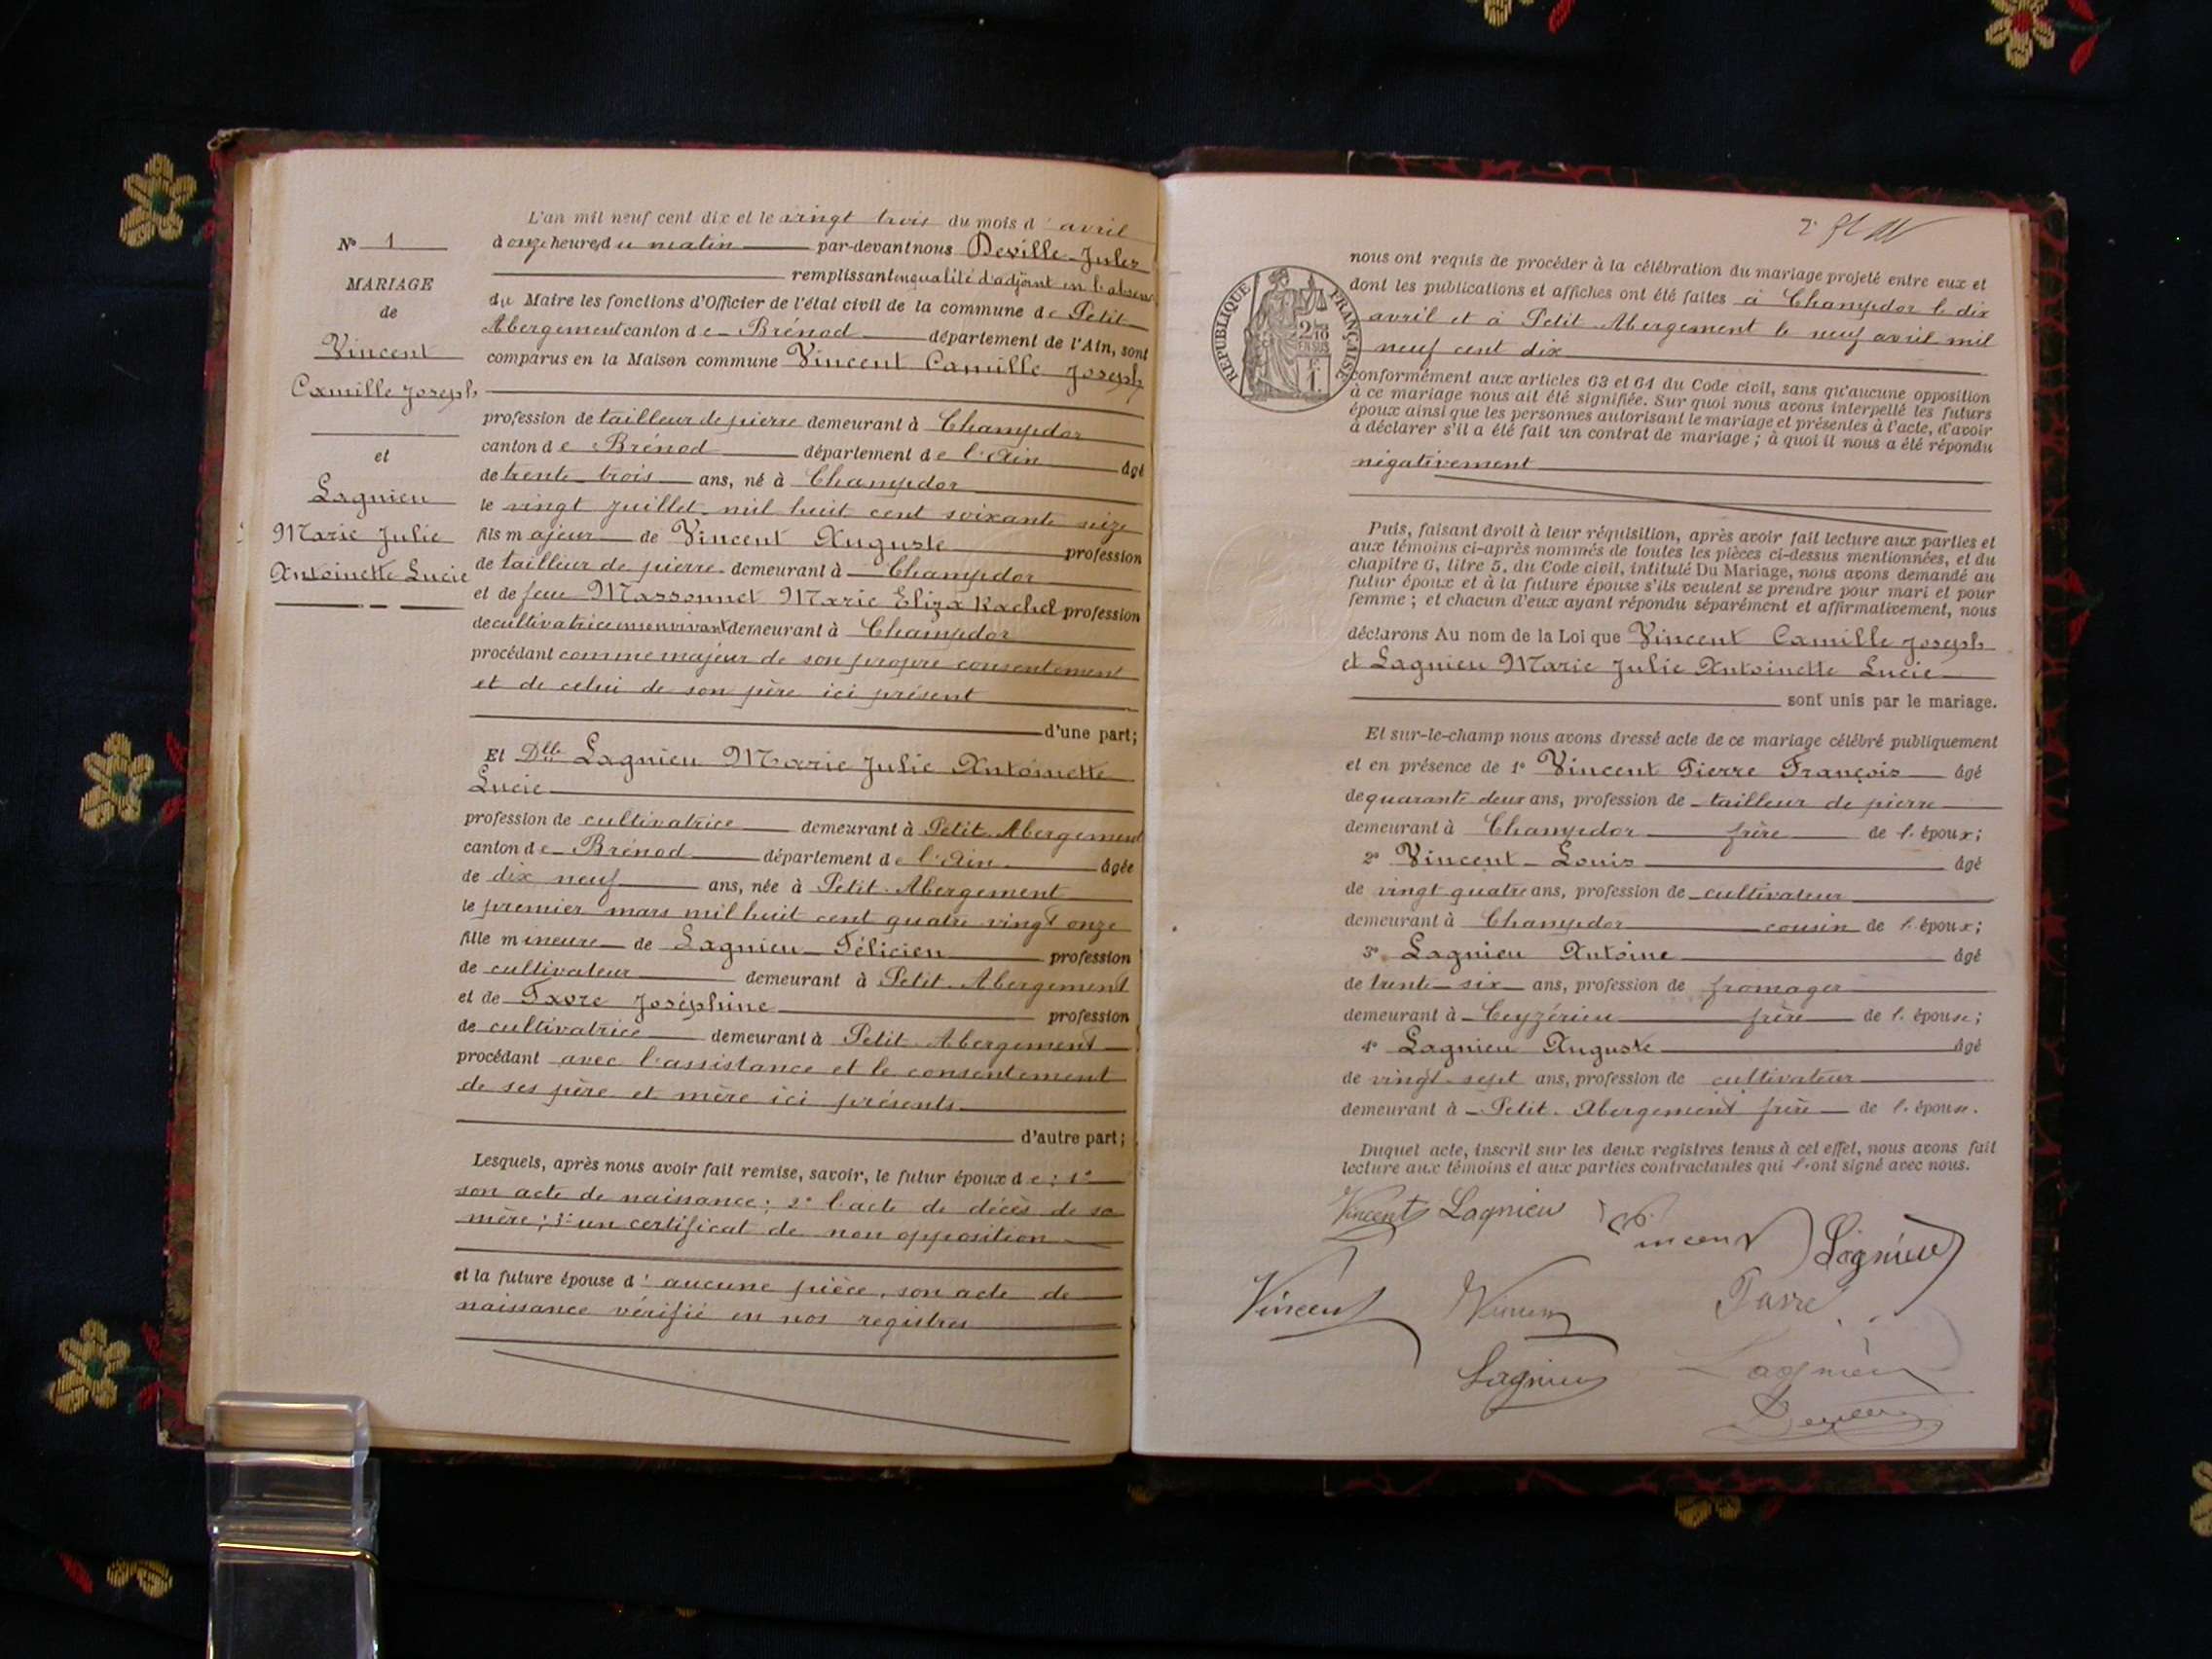 N° 1
MARIAGE
de
Vincent
Camille Joseph
et
Lagnieu
Marie Julie
Antoinette Lucie
L'an mil neuf cent dix et le vingt trois du mois d'avril
à onze heures du matin par-devant nous Deville Jules
remplissant en qualité d'adjoint en l'absence
du Maire les fonctions d'Officier de l'état civil de la commune de Petit
Abergement canton de Brénod département de l'Ain, sont
comparus en la Maison commune Vincent Camille Joseph
profession de tailleur de pierre demeurant à Champdor
canton de Brénod département de l'Ain âgé
de trente trois ans, né à Champdor
le vingt juillet mil huit cent soixante seize
fils majeur de Vincent Auguste profession
de tailleur de pierre demeurant à Champdor
et de feue Massonnet Marie Eliza Rachel profession
de cultivatrice en son vivant demeurant à Champdor
procédant comme majeur de son propre consentement
et de celui de son père ici présent
d'une part;
Et Dlle Lagnieu Marie Julie Antoinette
Lucie
profession de cultivatrice demeurant à Petit Abergement
canton de Brénod département de l'Ain âgée
de dix neuf ans, née à Petit Abergement
le premier mars mil huit cent quatre vingt onze
fille mineure de Lagnieu Félicien profession
de cultivateur demeurant à Petit Abergement
et de Favre Joséphine profession
de cultivatrice demeurant à Petit Abergement
procédant avec l'assistance et le consentement
de ses père et mère ici présents
d'autre part;
Lesquels, après nous avoir fait remise, savoir, le futur époux de : 1°
son acte de naissance; 2° l'acte de décès de sa
mère; 3° un certificat de non opposition
et la future épouse d'aucune pièce, son acte de
naissance vérifié en nos registres
RÉPUBLIQUE FRANÇAISE
2/10
EN SUS
F.
1.
nous ont requis de procéder à la célébration du mariage projeté entre eux et
dont les publications et affiches ont été faites à Champdor le dix
avril et à Petit Abergement le neuf avril mil
neuf cent dix
conformément aux articles 63 et 64 du Code civil, sans qu'aucune opposition
à ce mariage nous ait été signifiée. Sur quoi nous avons interpellé les futurs
époux ainsi que les personnes autorisant le mariage et présentes à l'acte, d'avoir
à déclarer s'il a été fait un contrat de mariage ; à quoi il nous a été répondu
négativement
Puis, faisant droit à leur réquisition, après avoir fait lecture aux parties et
aux témoins ci-après nommés de toutes les pièces ci-dessus mentionnées, et du
chapitre 6, titre 5, du Code civil, intitulé Du Mariage, nous avons demandé au
futur époux et à la future épouse s'ils veulent se prendre pour mari et pour
femme ; et chacun d'eux ayant répondu séparément et affirmativement, nous
déclarons Au nom de la Loi que Vincent Camille Joseph
et Lagnieu Marie Julie Antoinette Lucie
sont unis par le mariage.
Et sur-le-champ nous avons dressé acte de ce mariage célébré publiquement
et en présence de 1° Vincent Pierre François âgé
de quarante deux ans, profession de tailleur de pierre
demeurant à Champdor frère de l'époux;
2° Vincent Louis âgé
de vingt quatre ans, profession de cultivateur
demeurant à Champdor cousin de l'époux;
3° Lagnieu Antoine âgé
de trente six ans, profession de fromager
demeurant à Ceyzérieu frère de l'épouse;
4° Lagnieu Auguste âgé
de vingt sept ans, profession de cultivateur
demeurant à Petit Abergement frère de l'épouse.
Duquel acte, inscrit sur les deux registres tenus à cet effet, nous avons fait
lecture aux témoins et aux parties contractantes qui l'ont signé avec nous.
Vincent Lagnieu Vincent Lagnieu
Vincent Vincent Favre
Lagnieu Lagnieu
Deville